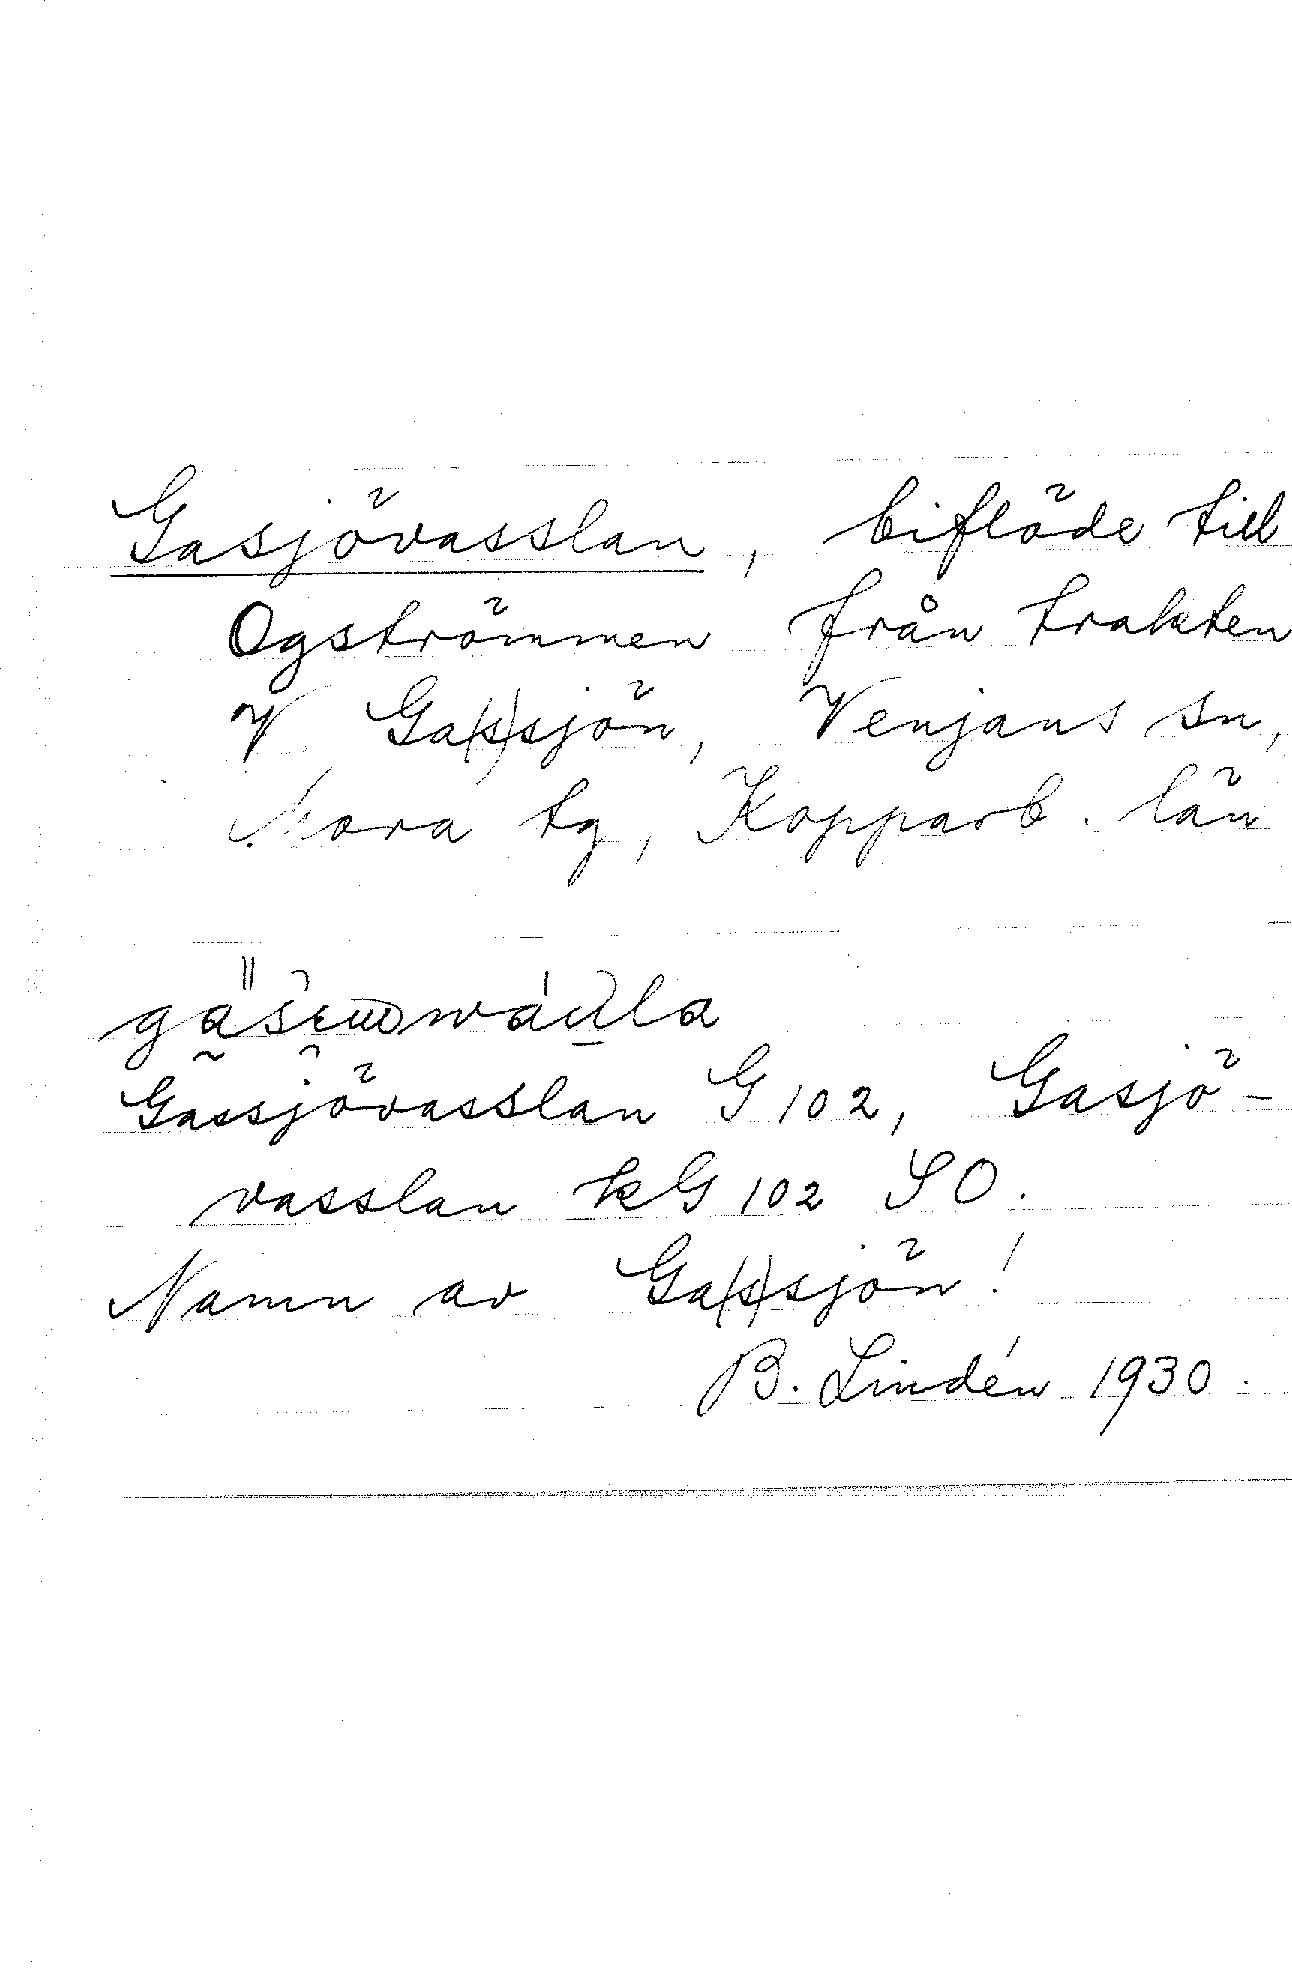 Gasjövasslan, biflöde till
Ogströmmen från trakten
V Ga(s)sjön, Venjans sn,
Mora tg, Kopparb. län
Gassjövasslan G 102, Gasjö-
vasslan kG 102 SO.
Namn av Ga(s)sjön!
B. Lindén 1930.